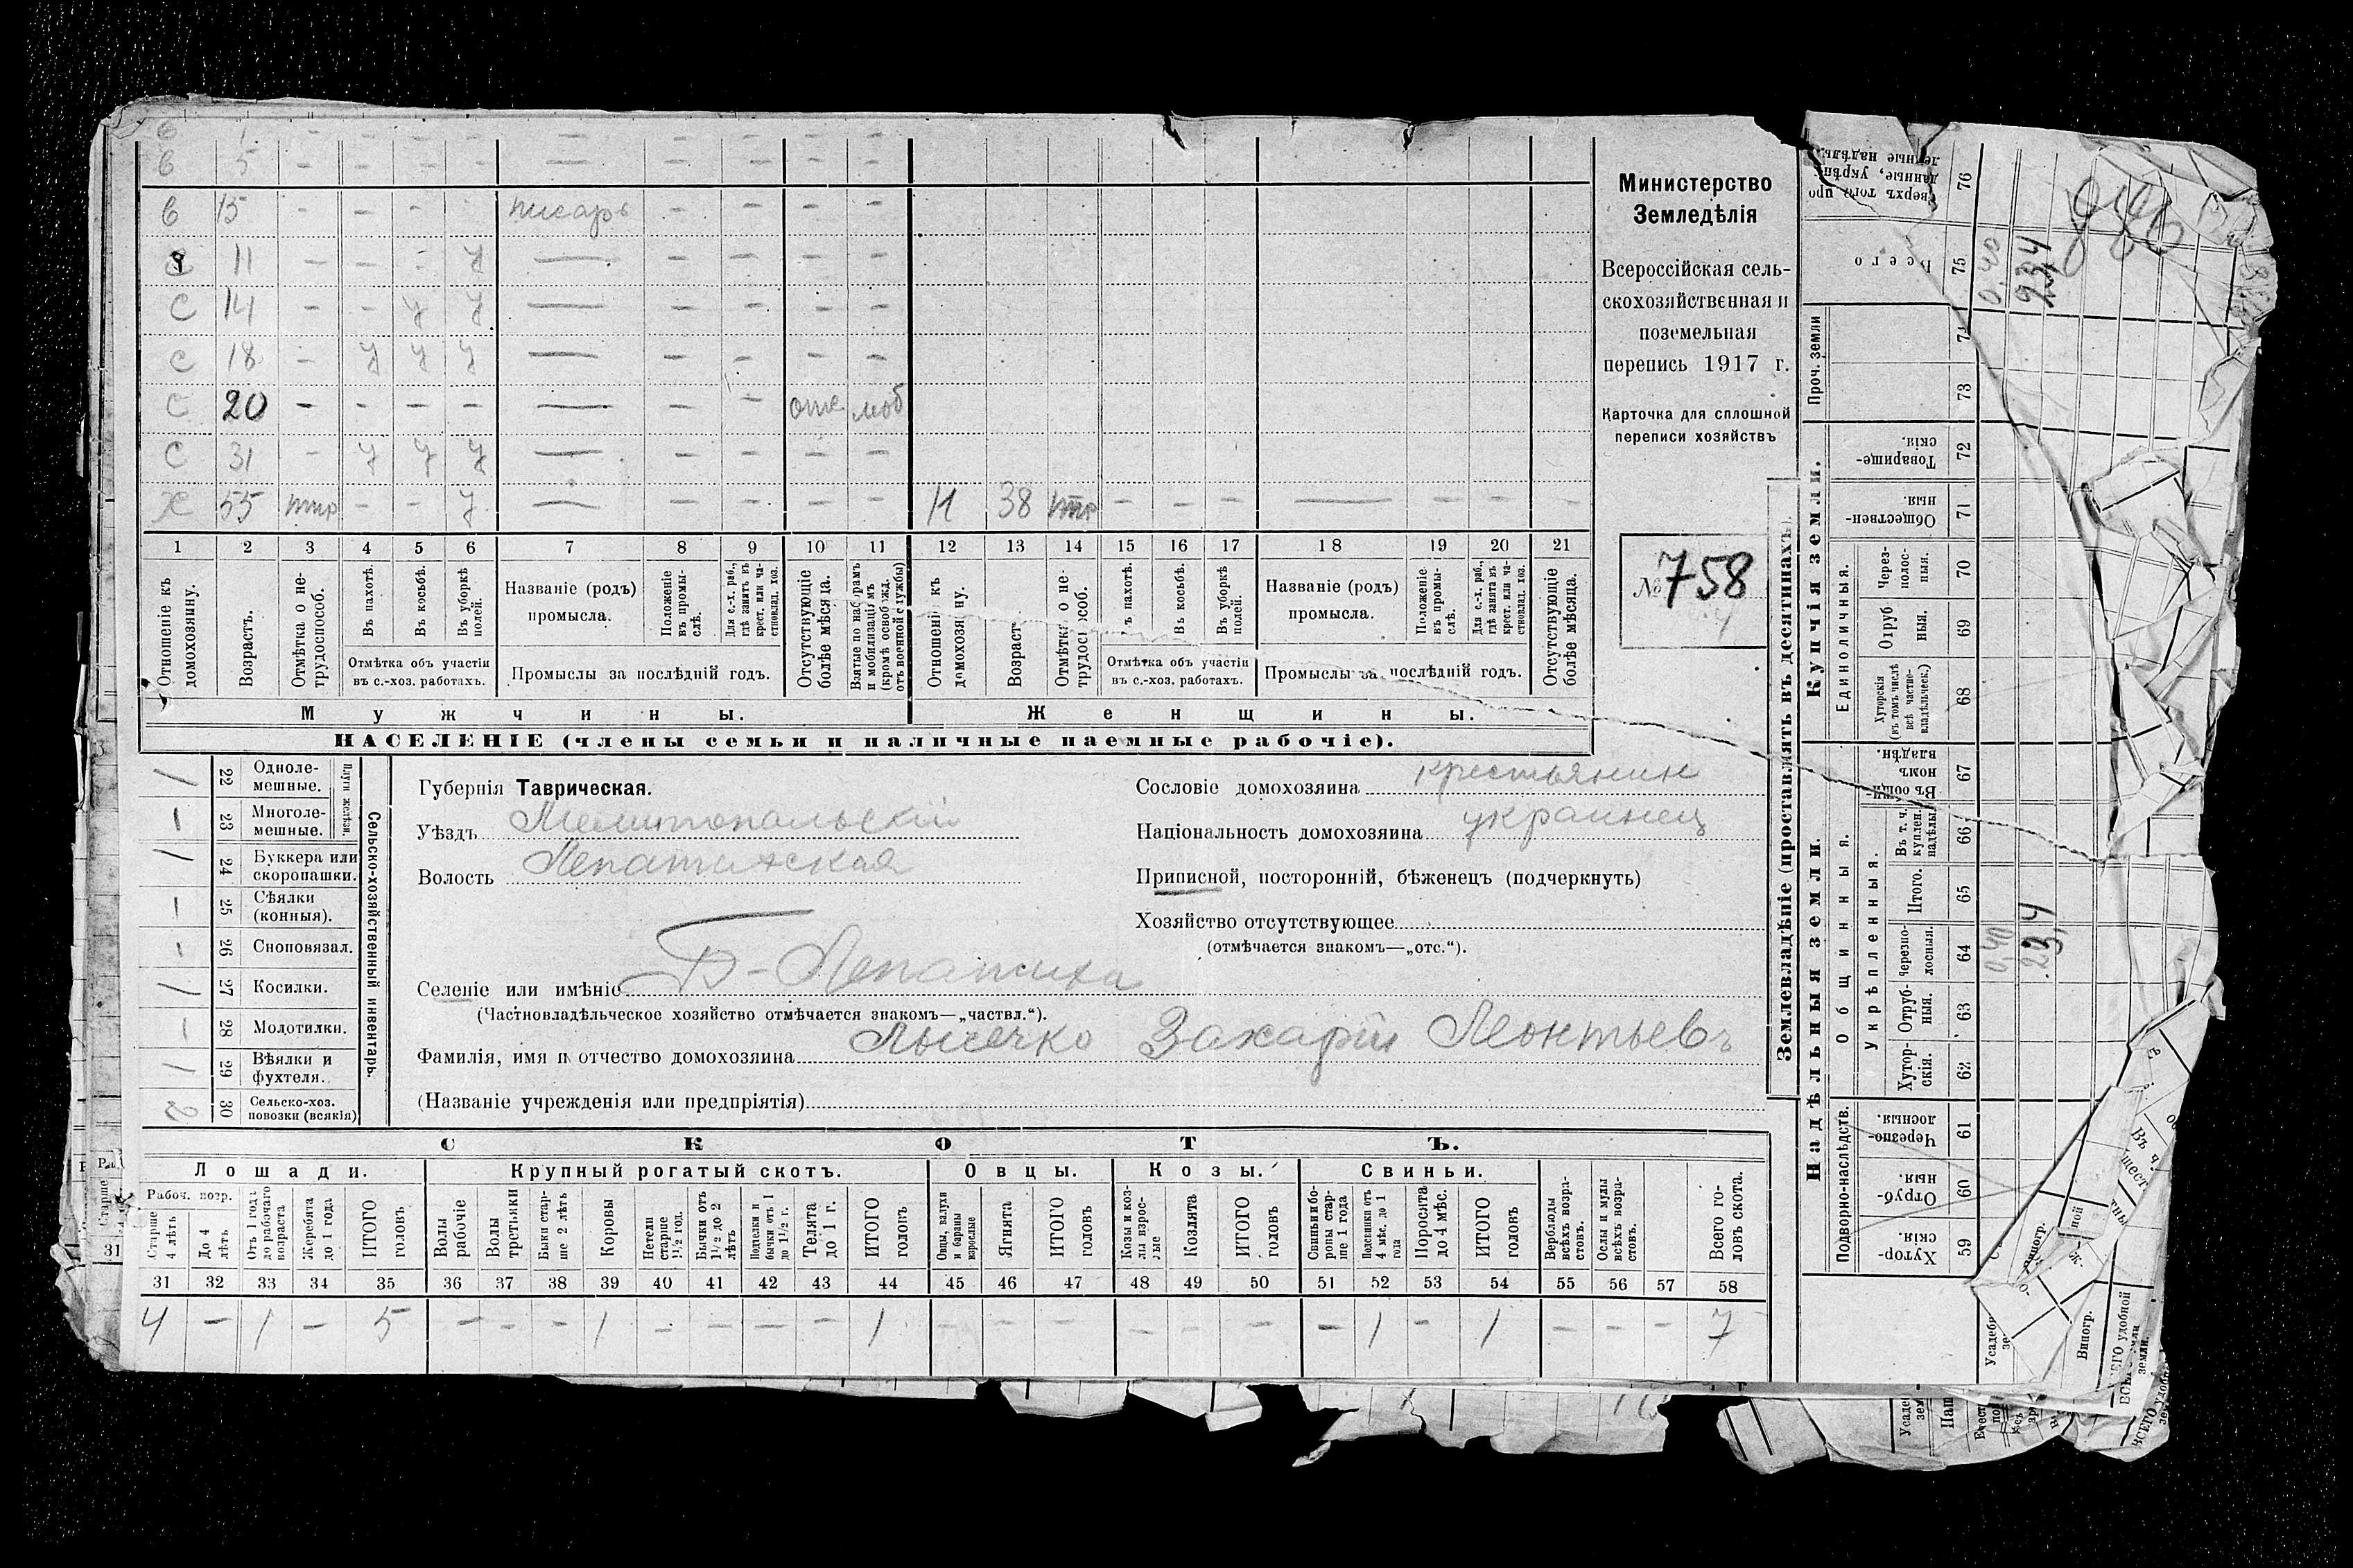 6 5 – – – – — – – – –
6 15 – – – – писарь – – – –
11 – – – У — – – – –
С 14 – – У У — – – – –
С 18 – У У У — – – – –
С 20 – – – – — – – отс моб
С 31 – У У У — – – – –
Х 55 – – У — – – – – 38 – – – — – – –
1 2 3 4 5 6 7 8 9 10 11 12 13 14 15 16 17 18 19 20 21
Отношеніе къ домохозяину.
Возрастъ.
Отмѣтка о не-трудоспособ.
Въ пахотѣ.
Въ косьбѣ.
Въ уборкѣ полей.
Отмѣтка объ участіи
въ с.-хоз. работахъ.
Названіе (родъ)
промысла.
Положеніе въ промы-слѣ.
Для с.-х. раб., гдѣ занятъ въ крест. или ча-стновлад. хоз.
Промыслы за послѣдній годъ.
Отсутствующіе болѣе мѣсяца.
Взятые по наборамъ и мобилизаціямъ (кромѣ освобожд. отъ военной службы)
Отношеніе къ домохозяину.
Возраст
Отмѣтка о не-трудоспособ.
ъ пахотѣ.
Въ косьбѣ.
Въ уборкѣ полей.
Отмѣтка объ участіи
въ с.-хоз. работахъ.
Названіе (родъ)
промысла.
Положеніе въ промы-слѣ.
Для с.-х. раб., гдѣ занятъ въ крест. или ча-стновлад. хоз.
Промыслы за послѣдній годъ.
Отсутствующіе болѣе мѣсяца.
Мужчины. Женщины.
НАСЕЛЕНІЕ (члены семьи и наличные наемные рабочіе).
Министерство
Земледѣлія
Всероссійская сель-
скохозяйственная и
поземельная
перепись 1917 г.
Карточка для сплошной
переписи хозяйствъ
№ 758
Сельско-хозяйственный инвентарь.
Плуги желѣзн.
1 22 Одноле-мешные.
– 23 Многоле-мешные.
1 24 Буккера или скоропашки.
– 25 Сѣялки (конныя).
– 26 Сноповязал.
1 27 Косилки.
– 28 Молотилки.
1 29 Вѣялки и фухтеля.
2 30 Сельско-хоз. повозки (всякія)
Губернія Таврическая.
Уѣздъ Мелитопольскій
Волость Лепатихская
Селеніе или имѣніе Б-Лепатиха
(Частновладѣльческое хозяйство отмѣчается знакомъ—„частвл.“).
Фамилія, имя и отчество домохозяина Лысечко Захарій Леонтьевъ
(Названіе учрежденія или предпріятія)
Сословіе домохозяина крестьянин
Національность домохозяина украинец
Приписной, посторонній, бѣженецъ (подчеркнуть)
Хозяйство отсутствующее
(отмѣчается знакомъ—„отс.“).
СКОТЪ.
Лошади. Крупный рогатый скотъ. Овцы. Козы. Свиньи.
Рабоч. возр.
Старше 4 лѣтъ
До 4 лѣтъ
Отъ 1 года до рабочаго возраста
Жеребята до 1 года
ИТОГО головъ
Волы рабочіе
Волы третьяки
Быки стар-ше 2 лѣтъ
Коровы
Нетели старше 1½ год.
Бычки отъ 1½ до 2 лѣтъ
Подтелки и бычки отъ 1 до 1½ г.
Телята до 1 г.
ИТОГО головъ
Овцы, валухи и бараны взрослые
Ягнята
ИТОГО головъ
Козы и коз-лы взрос-лые
Козлята
ИТОГО головъ
Свиньи и бо-ровы стар-ше 1 года
Подсвинки отъ 4 мѣс. до 1 года
Поросята до 4 мѣс.
ИТОГО головъ
Верблюды всѣхъ возра-стовъ.
Ослы и мулы всѣхъ возра-стовъ.
Всего го-ловъ скота.
31 32 33 34 35 36 37 38 39 40 41 42 43 44 45 46 47 48 49 50 51 52 53 54 55 56 57 58
4 – 1 – 5 – – – 1 – – – – 1 – – – – – – – 1 – 1 – – – 7
Землевладѣніе (проставлять въ десятинахъ).
Надѣльныя земли. Купчія земли.
Подворно-наслѣдств.
Общинныя.
Укрѣпленныя.
Единоличныя.
Проч. земли
Хутор-скія. 59
Отруб-ныя. 60
Черезпо-лосныя. 61
Хутор-скія. 62
Отруб-ныя. 63
Черезпо-лосныя. 64 0,40 23,4
Итого. 65
Въ т. ч. куплен. надѣлы 66
Въ общи-номъ владѣн. 67
Хуторскія (въ томъ числѣ всѣ частно-владѣльческ.) 68
Отруб ныя. 69
Через-полос-ныя. 70
Обществен-ныя. 71
Товарище-скія. 72
73
74
Всего 75 0,40 23,4
Сверхъ того про данные, укрѣп-ленные надѣлы. 76
Виногр.